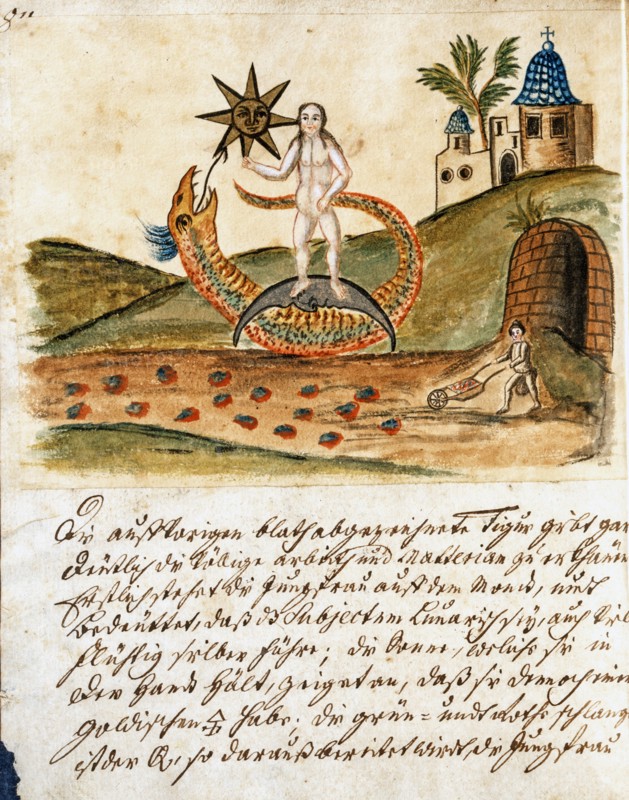 Die auff Vorigen blath abgezeichnete Figur gibt gar
deütlich die Völlige arbeith und Matteriam zu erkhänen
Erstlich stehet die Jungfrau auff dem Mond, und
bedeüttet, daß das Subjectum Lunarisch sey, auch Viel
flüßtig silber führe; die Sonne, welche sie in
der Hand hält, zeiget an, daß sie dennoch einen
goldischen habe; die grün= undt rothe schlang
ist der so darauß bereitet wirdt, die Jungfrau